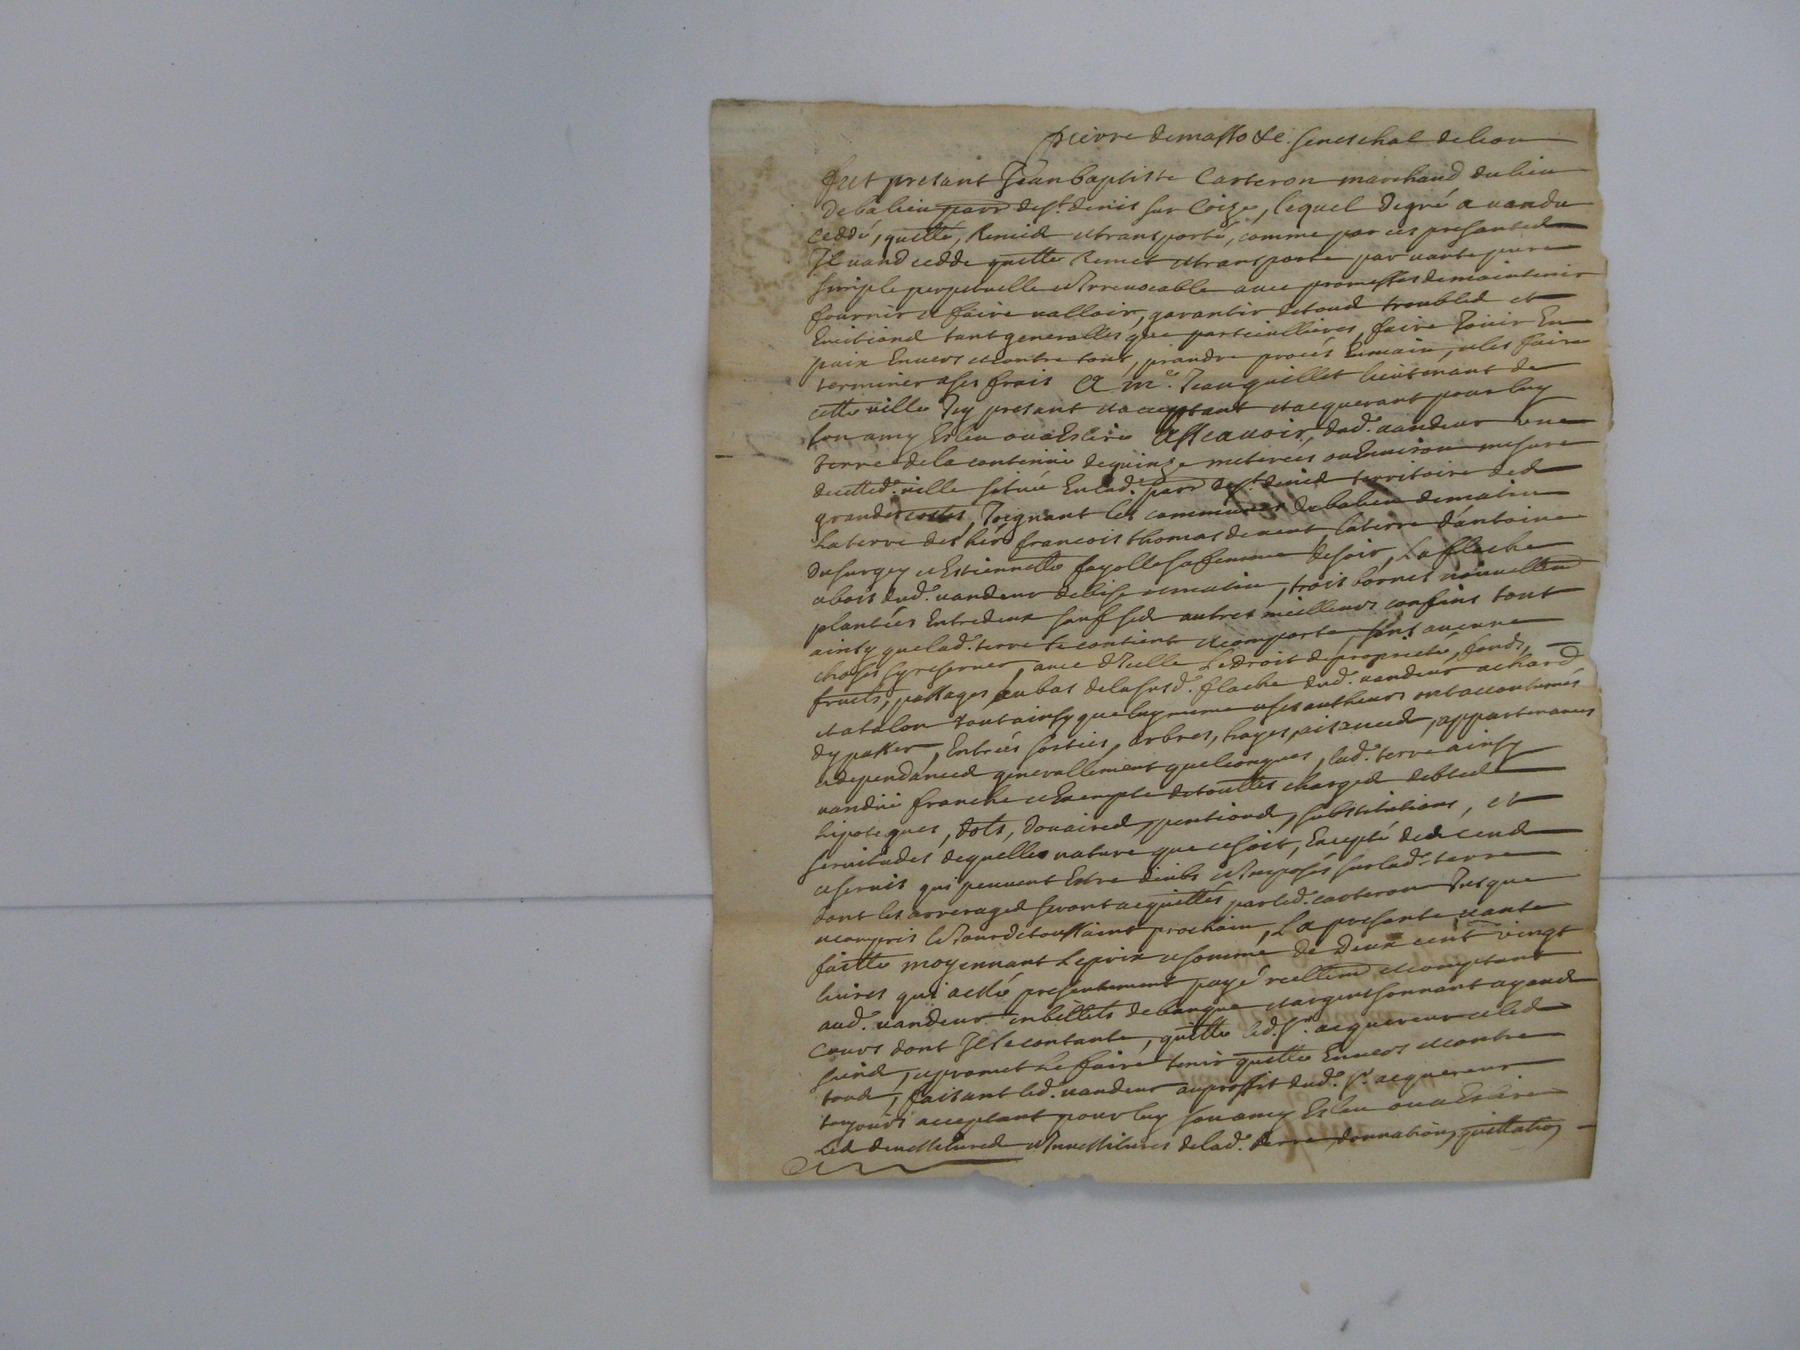 pierre demasso &c. seneschal de lion
fut presant Jean baptiste Carteron marchand du lieu
de balieu parr. de st. denis sur Coize, lequel de gré a vandu
ceddé, quitté, Remis et transporté, comme par ces presantes
Il vand cedde quitte Remet et transporte par vante pure
simple perpetuelle et Irrevocable avec promesses de maintenir
fournir et faire valloir, garantir de tous troubles et
Evictions tant generalles que particullieres, faire Jouir En
paix Envers et contre tous, prandre procés En main, et les faire
terminer a ses frais A me. Jean guillet lieutenant de
cette ville Icy presant et acceptant et acquerant pour luy
son amy Esleu ou a Eslire Asscavoir, dud. vandeur une
terre de la contenüe de quinze meterées ou Environ mesure
de cetted. ville situé En lad. parr. de st. denis territoire des
grandes costes, Joignant les communes de balieu de matin
La terre des hers. francois thomas de vent, la terre d'antoine
Dusurgey et Estiennette fayolle sa femme de soir, La flache
a bois dud. vandeur de bise et matin, trois bornes nouvellem.
plantées Entredeux sauf ses autres meilleurs confins tout
ainsy que lad. terre se contient et comporte, sans aucune
choses sy reserver, avec d'Icelle Le droit de proprieté, fonds,
fruits, passages au bas de la susd. flache dud. vandeur a chard
et a talon tout ainsy que luy mesme et ses autheurs ont accoutumés
dy passer, Entrées sorties, arbres, hayes, aisances, appartenances
et dependances generallement quelconques, lad. terre ainsy
vandüe franche et Exempte de touttes charges debtes
hipoteques, dots, douaires, pentions, substitutions, et
servitudes de quelles nature que ce soit, Excepté des cens
et servis qui peuvent Estre deubs et Imposés sur lad. terre
dont les arrerages seront acquittés par led. carteron Jusque
et compris le Jour de toussaint prochain, La presante vante
faitte moyennant Le prix et somme de Deux cent vingt
livres qui a esté presentement payé réellem. et comptant
aud. vandeur en billets de banque et argent sonnant ayant
cours dont Il se contante, quitte led. sr. acquereur et les
siens, et promet Le faire tenir quitte Envers et contre
tous, faisant led. vandeur au proffit dud. sr. acquereur
toujours acceptant pour luy son amy Esleu ou a Eslire
Les demestitures et Investitures de lad. terre, donnation, quittation